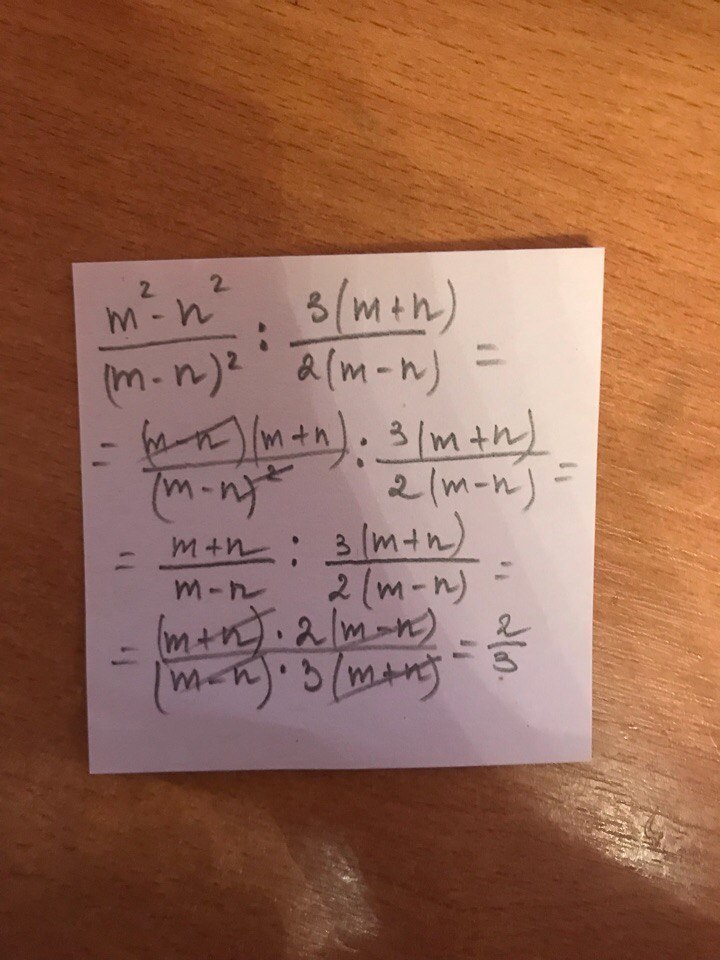 \frac{m^2-n^2}{(m-n)^2} : \frac{3(m+n)}{2(m-n)} =
= \frac{(m-n)(m+n)}{(m-n)^2} : \frac{3(m+n)}{2(m-n)} =
= \frac{m+n}{m-n} : \frac{3(m+n)}{2(m-n)} =
= \frac{(m+n) \cdot 2(m-n)}{(m-n) \cdot 3(m+n)} = \frac{2}{3}